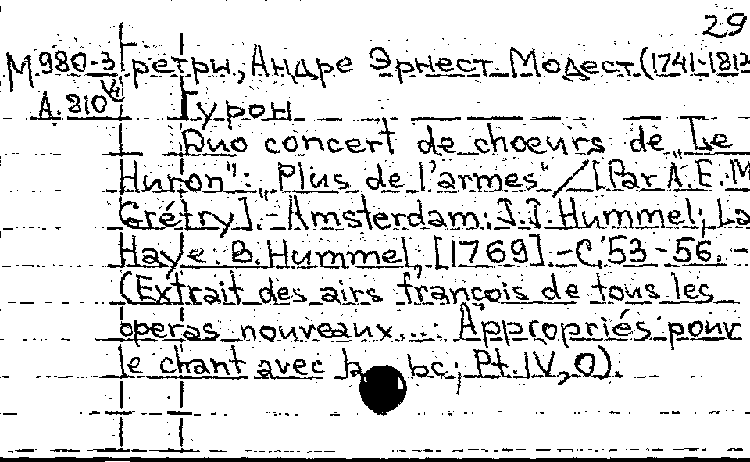 29
М980-3 Гретри, Андре Эрнест Модест (1741-1813
А.810 1/4 Гурон
Duo concert de choeurs de „Le
Huron": „Plus de l'armes" / [Par A.E.M
Grétry]. - Amsterdam: J.J. Hummel; La
Haye: B. Hummel, [1769]. - C. 53-56. -
(Extrait des airs françois de tous les
operas nouveaux...: Appropriés pour
le chant avec la bc; Pt. IV, O).